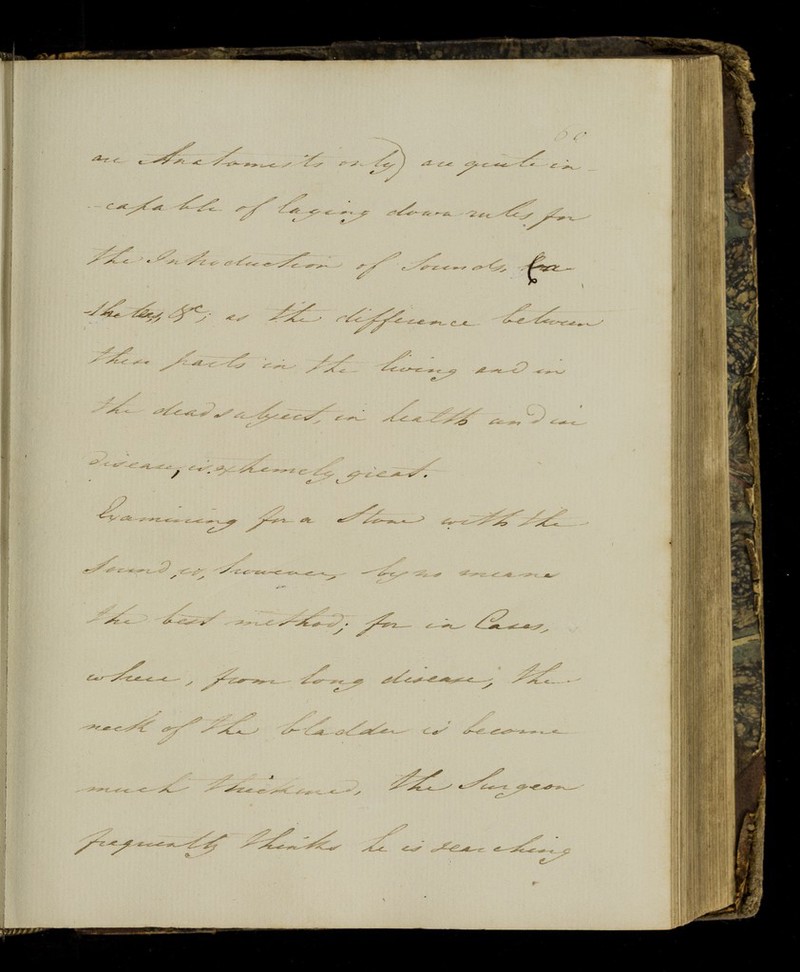 60
are Anatomists only) are quite in-
-capable of laying down rules for
the Introduction of Sounds, Ca-
-theters, &c; as the difference between
these parts in the living and in
the dead subject, in health and in
disease, is extremely great.
Examining for a Stone with the
Sound, is, however, by no means
the best method; for in Cases,
where, from long disease, the
neck of the bladder is become
much thickened, the Surgeon
frequently thinks he is searching